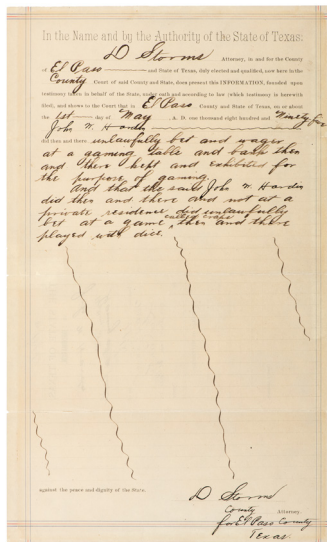 In the Name and by the Authority of the State of Texas:
D Storms Attorney, in and for the County
of El Paso and State of Texas, duly elected and qualified, now here in the
County Court of said County and State, does present this INFORMATION, founded upon
testimony taken in behalf of the State, under oath and according to law (which testimony is herewith
filed, and shows to the Court that in El Paso County and State of Texas, on or about
the 1st day of May A. D. one thousand eight hundred and Ninety five
John W. Hardin
did then and there unlawfully bet and wager
at a gaming table and bank then
and there kept and exhibited for
the purpose of gaming.
And that the said John W Hardin
did then and there and not at a
private residence did unlawfully
bet at a game called craps then and there
played with dice.
against the peace and dignity of the State.
D Storms
County Attorney.
for El Paso County
Texas